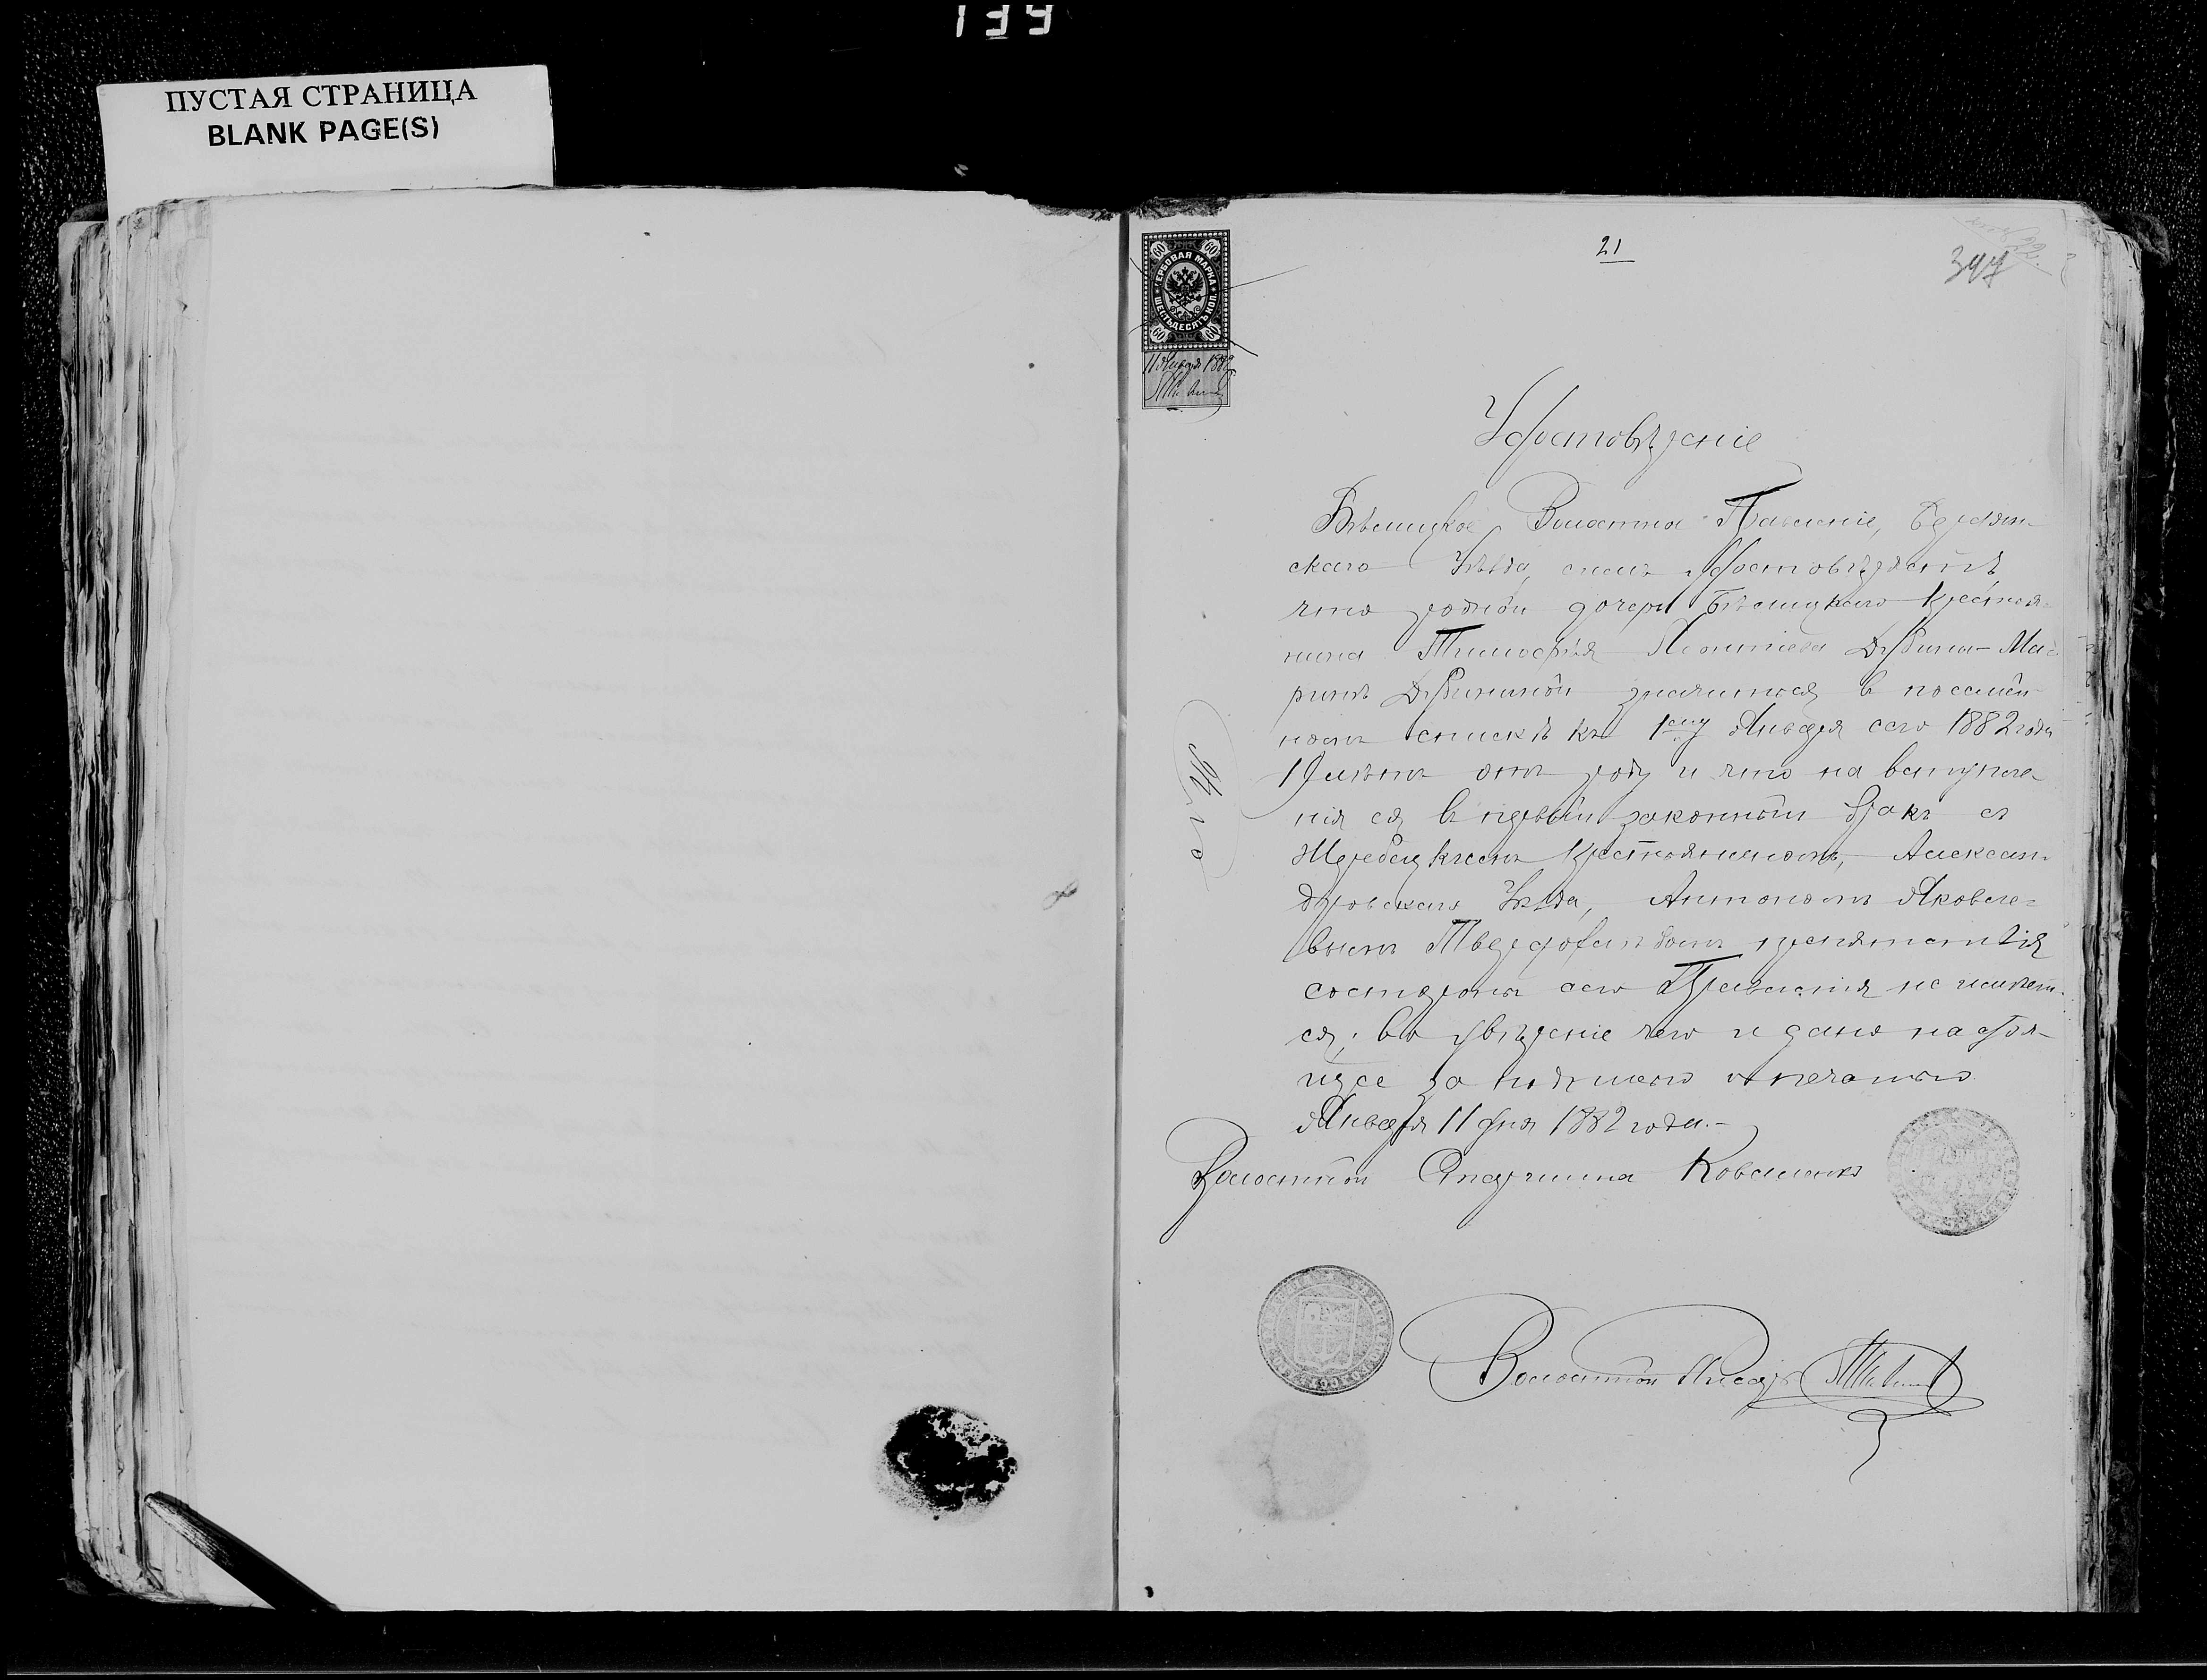 139
ПУСТАЯ СТРАНИЦА
BLANK PAGE(S)
21
347
60 60
ГЕРБОВАЯ МАРКА
ШЕСТЬДЕСЯТЪ КОП.
60 60
11 Января 1882
Удостовѣреніе
Волостное Правленіе, Бердян-
скаго Уѣзда, симъ удостовѣряетъ
что родной дочери Бѣлицкаго крестья-
нина Тимофѣя Леонтіева Дубины - Ма-
ринѣ Дубиной значится в посемей-
номъ спискѣ къ 1му Января сего 1882 года
19 лѣтъ отъ роду и что на вступле-
нія ея въ первый законный бракъ съ
Жеребецкимъ Крестьяниномъ, Алексан-
дровскаго Уѣзда, Антономъ Яковле-
вымъ Твердохлѣбомъ препятствія
состороны сего Правленія не имѣет-
ся; во увѣреніе чего и дано настоя-
щее за подписью и печатью
Января 11 дня 1882 года.-
Волостной Старшина Коваленко
Волостной Писарь